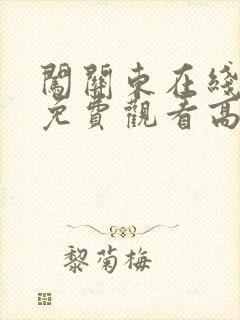 闖關東在綫
免費觀看高
黎菊梅